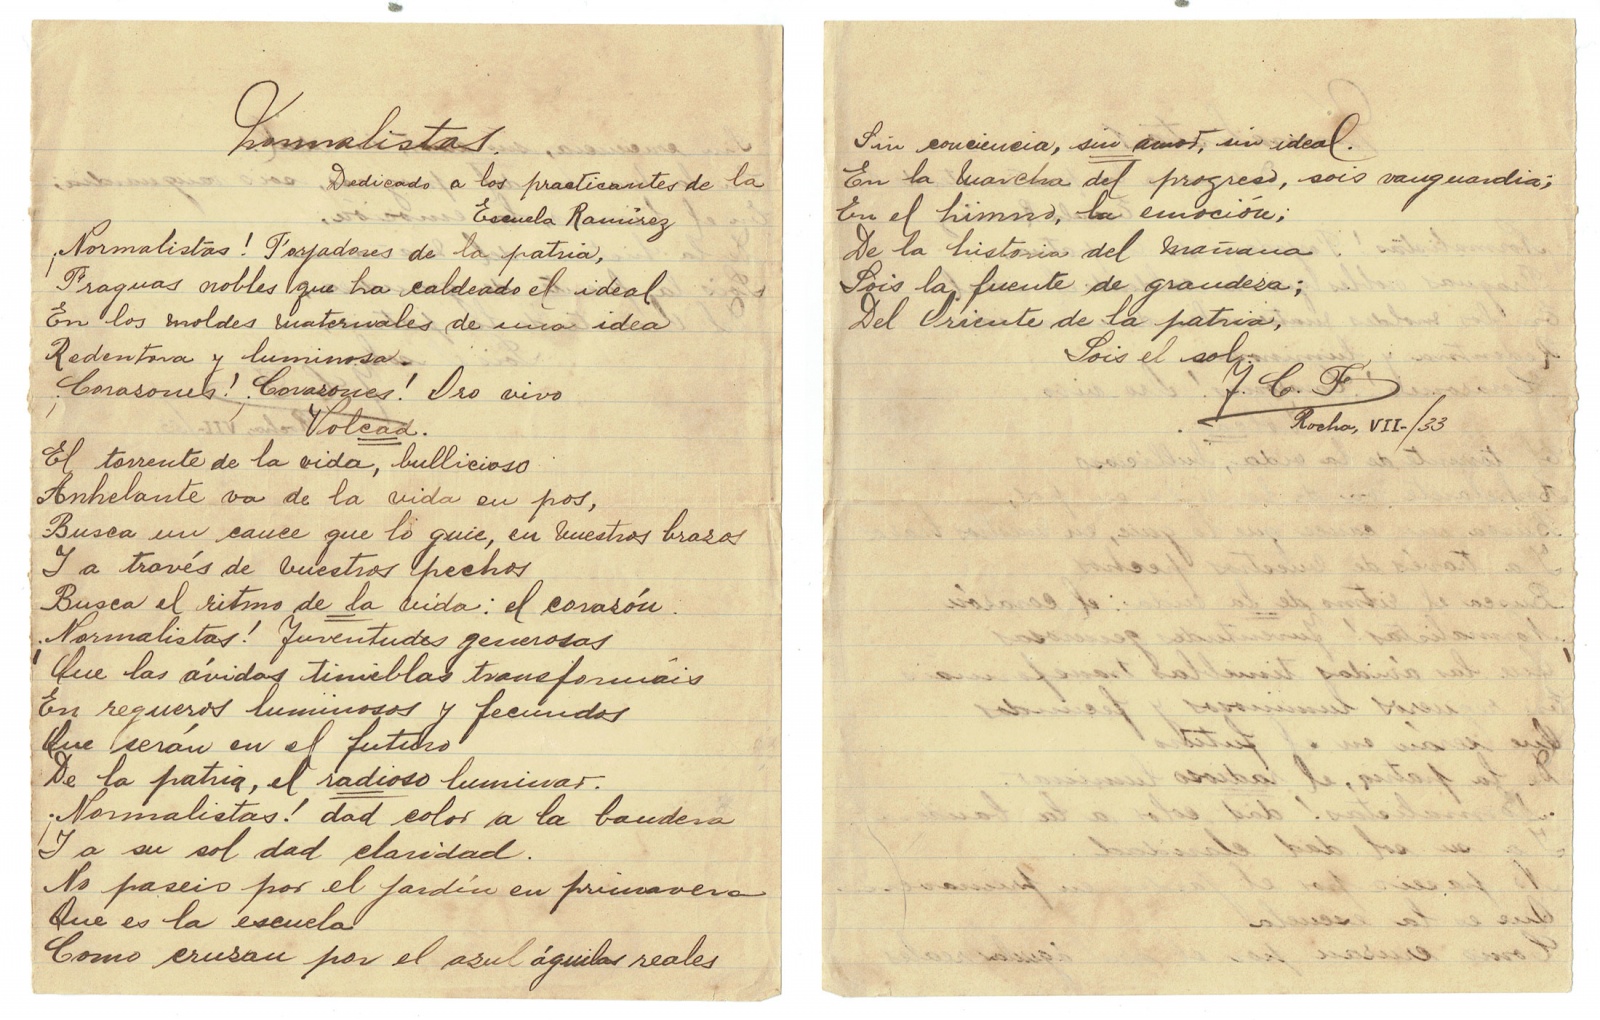 Normalistas.
Dedicado a los practicantes de la
Escuela Ramírez
¡Normalistas! Forjadores de la patria,
Fraguas nobles que ha caldeado el ideal
En los moldes maternales de una idea
Redentora y luminosa.
¡Corazones! ¡Corazones! Oro vivo
Volcad.
El torrente de la vida, bullicioso
Anhelante va de la vida en pos,
Busca un cauce que lo guie, en vuestros brazos
Y a través de vuestros pechos
Busca el ritmo de la vida: el corazón.
¡Normalistas! Juventudes generosas
Que las ávidas tinieblas transformáis
En regueros luminosos y fecundos
Que serán en el futuro
De la patria, el radioso luminar.
¡Normalistas! dad color a la bandera
Y a su sol dad claridad.
No paseis por el jardín en primavera
Que es la escuela
Como cruzan por el azul águilas reales
Sin conciencia, sin amor, sin ideal.
En la marcha del progreso, sois vanguardia;
En el himno, la emoción;
De la historia del mañana
Sois la fuente de grandeza;
Del Oriente de la patria,
Sois el sol.
J. C. F.
Rocha, VII-/33